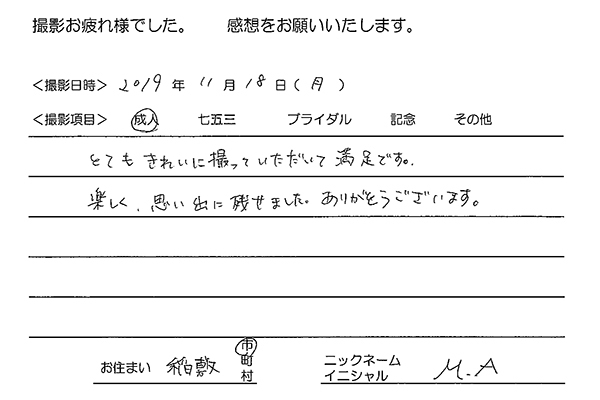 撮影お疲れ様でした。 感想をお願いいたします。
＜撮影日時＞ 2019 年 11 月 18 日（月）
＜撮影項目＞ 成人 七五三 ブライダル 記念 その他
とても きれいに撮っていただいて 満足です。
楽しく、思い出に残せました。ありがとうございます。
お住まい 稲敷 市 町 村 ニックネーム イニシャル M.A